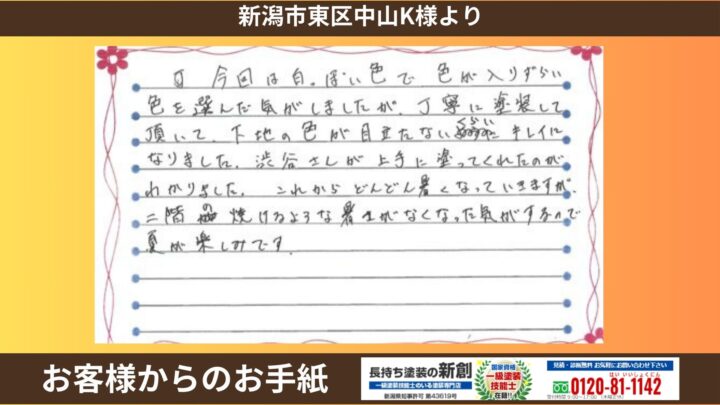 新潟市東区中山K様より
今回は白っぽい色で 色が入りずらい
色を選んだ気がしましたが、丁寧に塗装して
頂いて、下地の色が目立たないぐらいキレイに
なりました。渋谷さんが上手に塗ってくれたのが
わかりました。 これからどんどん暑くなっていきますが、
二階の焼けるような暑さがなくなった気がするので
夏が楽しみです。
お客様からのお手紙
長持ち塗装の新創
一級塗装技能士のいる塗装専門店
新潟県知事許可 第43619号
国家資格
一級塗装
技能士
在籍!!
見積・診断無料 お気軽にお問い合わせ下さい
はい いいしょくにん
0120-81-1142